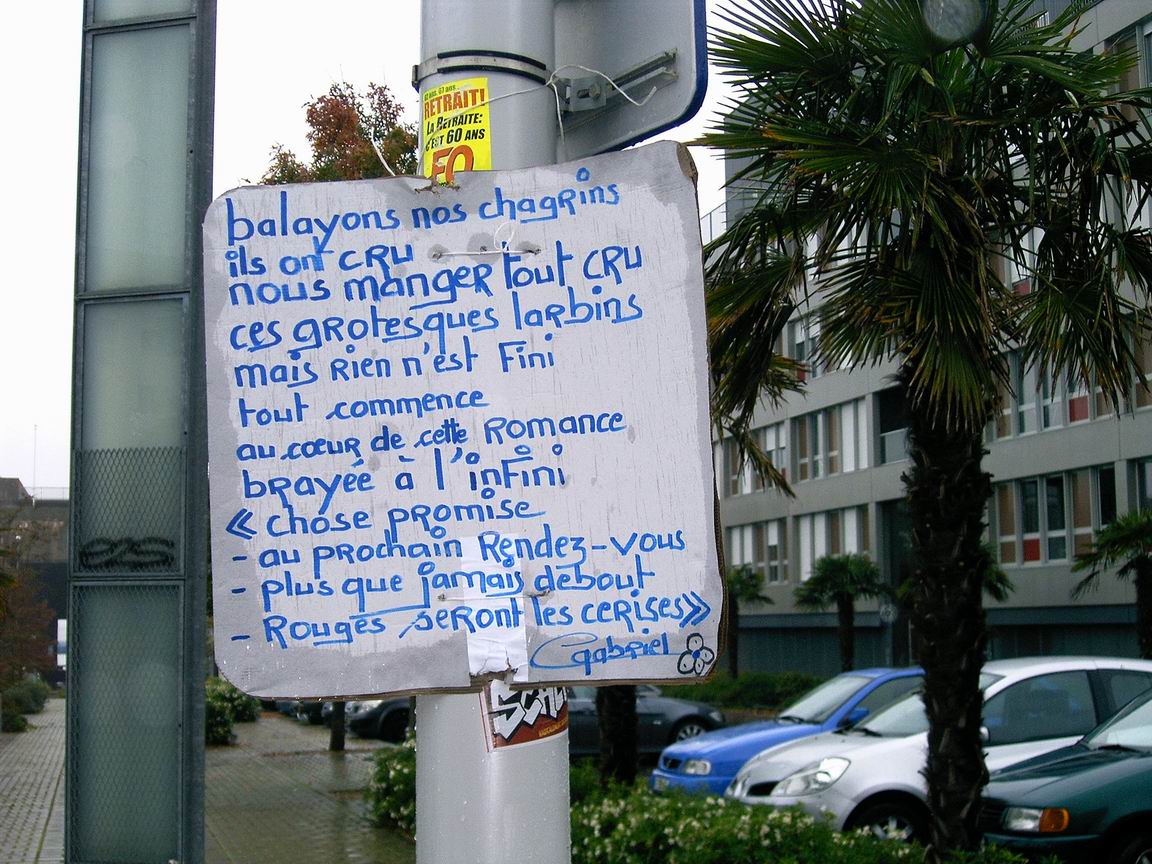 RETRAIT!
La RETRAITE:
C'EST 60 ANS
FO
balayons nos chagRins
ils ont CRU
nous mangeR tout CRU
ces gRotesques laRbins
mais Rien n'est Fini
tout commence
au cœur de cette Romance
bRayée à l'inFini
« chose pRomise
- au pRochain Rendez-vous
- plus que jamais debout
- Rouges seRont les ceRises »
Gabriel